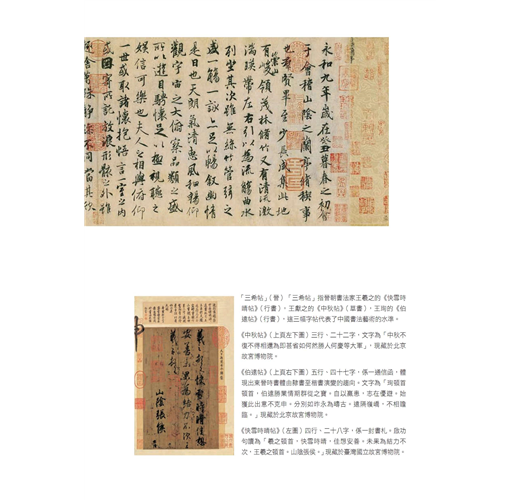 永和九年歲在癸丑暮春之初會
于會稽山陰之蘭亭脩稧事
也羣賢畢至少長咸集此地
有崇山峻領茂林脩竹又有清流激
湍暎帶左右引以為流觴曲水
列坐其次雖無絲竹管弦之
盛一觴一詠亦足以暢叙幽情
是日也天朗氣清惠風和暢仰
觀宇宙之大俯察品類之盛
所以遊目騁懷足以極視聽之
娛信可樂也夫人之相與俯仰
一世或取諸懷抱悟言一室之內
或因寄所託放浪形骸之外雖
趣舍萬殊靜躁不同當其欣
羲之頓首快雪時晴佳想
安善未果為結力不次王
羲之頓首
山陰張侯
「三希帖」（晉）「三希帖」指晉朝書法家王羲之的《快雪時
晴帖》（行書），王獻之的《中秋帖》（草書），王珣的《伯
遠帖》（行書），這三幅字帖代表了中國書法藝術的水準。
《中秋帖》（上頁左下圖）三行、二十二字，文字為「中秋不
復不得相還為即甚省如何然勝人何慶等大軍」，現藏於北京
故宮博物院。
《伯遠帖》（上頁右下圖）五行、四十七字，係一通信函，體
現出東晉時書體由隸書至楷書演變的趨向。文字為「珣頓首
頓首，伯遠勝業情期群從之寶。自以羸患，志在優遊。始
獲此出意不克申。分別如昨永為疇古。遠隔嶺嶠，不相瞻
臨。」現藏於北京故宮博物院。
《快雪時晴帖》（左圖）四行、二十八字，係一封書札。啟功
句讀為「羲之頓首，快雪時晴，佳想安善。未果為結力不
次，王羲之頓首。山陰張侯。」現藏於臺灣國立故宮博物院。